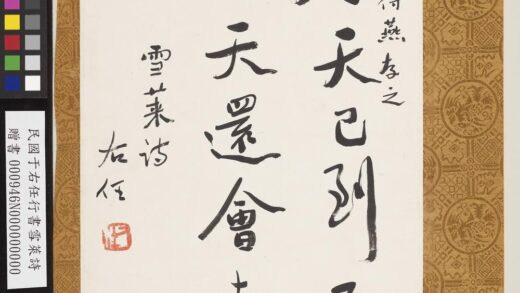 燕存之
天已到
天還會
雪萊詩
右任
民國于右任行書雪萊詩
贈書 000946N000000000